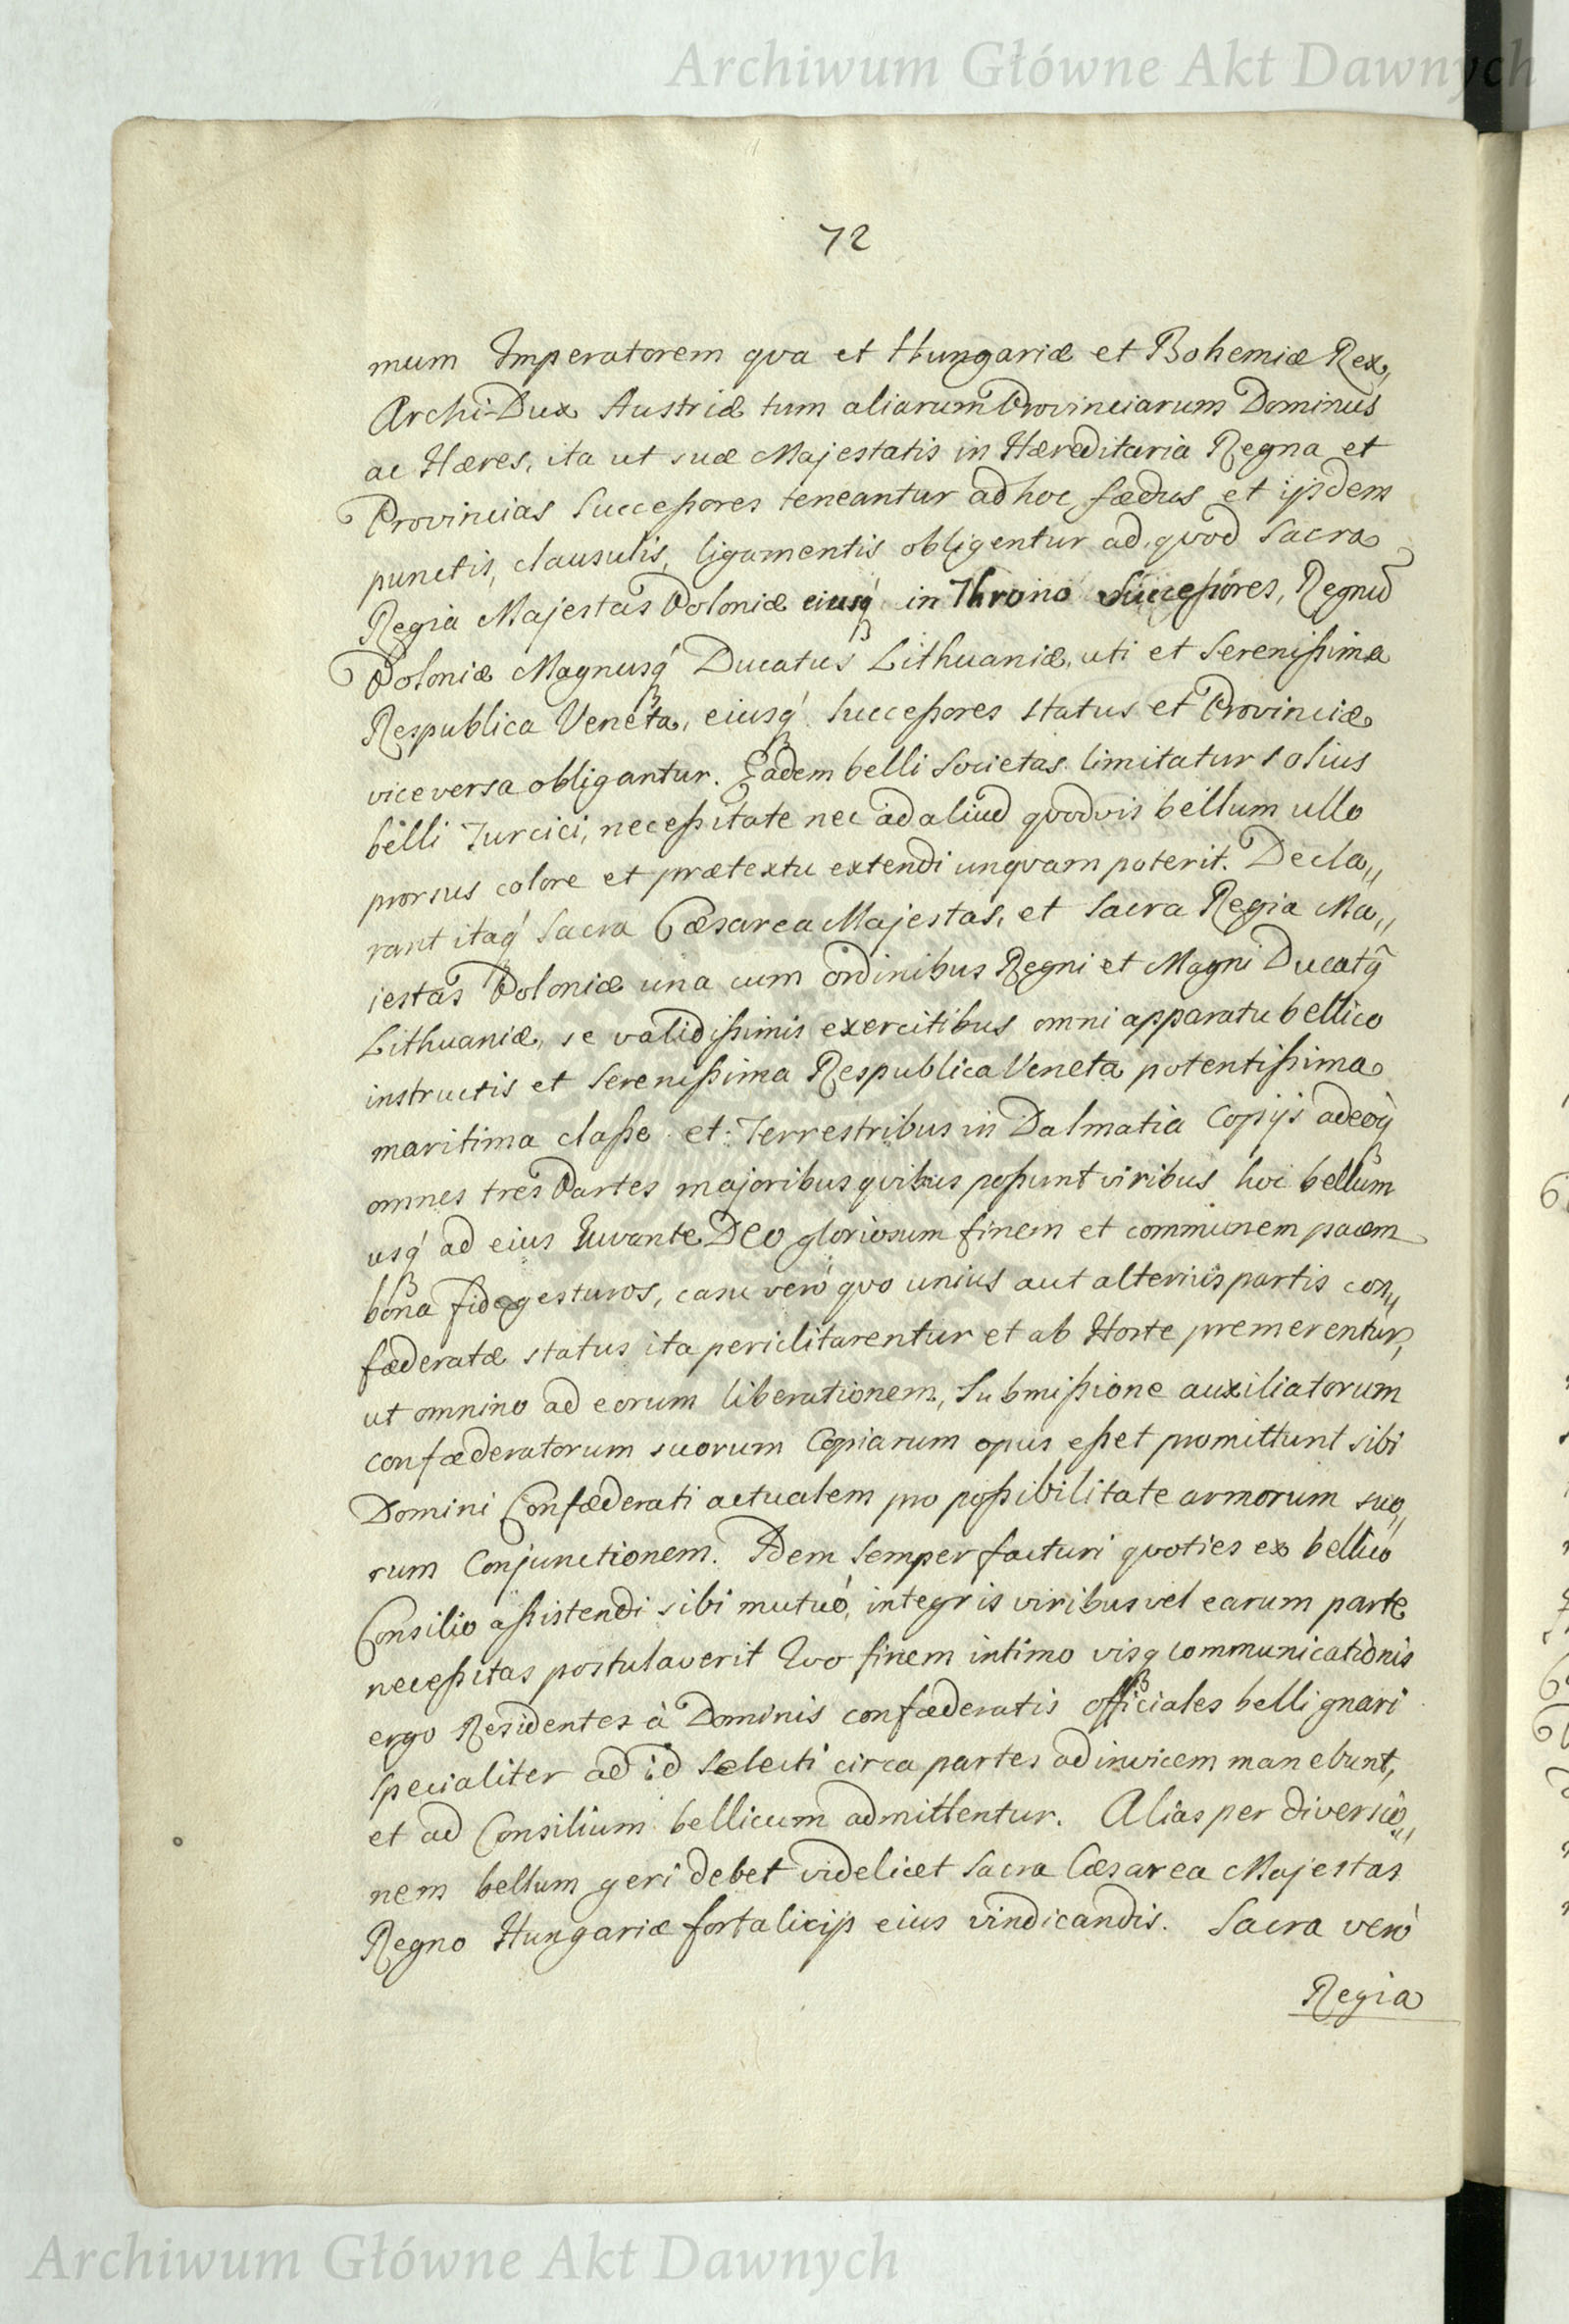 Archiwum Główne Akt Dawnych
72
mum Imperatorem qva et Hungariæ et Bohemiæ Rex,
Archi-Dux Austriæ tum aliarum Provinciarum Dominus
ac Hæres, ita ut suæ Majestatis in Hæreditaria Regna et
Provincias Succeßores teneantur ad hoc fædus et ijsdem
punctis, clausulis, ligamentis obligentur ad qvod Sacra
Regia Majestas Poloniæ eiusq́ in Throno Succeßores, Regnū
Poloniæ Magnusq́ Ducatus Lithuaniæ, uti et Sereníßima
Respublica Veneta, eiusq́ Succeßores status et Provinciæ
vice versa obligantur. Eadem belli Societas limitatur solius
belli Turcici, neceßitate nec ad aliud qvodvis bellum ullo
prorsus colore et prætextu extendi unqvam poterit. Decla„
rant itaq́ Sacra Cæsarea Majestas, et Sacra Regia Ma„
iestas Poloniæ una cum ordinibus Regni et Magni Ducatq̃
Lithuaniæ, se validißimis exercitibus omni apparatu bellico
instructis et Sereníßima Respublica Veneta potentißima
maritima claße et Terrestribus in Dalmatia Copijs adeoq́
omnes tres Partes majoribus qvibus poßunt viribus hoc bellum
usq́ ad eius Iuvante DEO gloriosum finem et communem pacem
bona fide gesturos, casu verò quo unius aut alterius partis con„
fæderatæ status ita periclitarentur et ab Hoste premerentur,
ut omnino ad eorum liberationem, Submißione auxiliatorum
confæderatorum suorum Copiarum opus eßet promittunt sibi
Domini Confæderati actualem pro poßibilitate armorum suo„
rum Conjunctionem. Idem semper facturi qvoties ex bellico
Consilio aßistendi sibi mutuò, integris viribus vel earum parte
neceßitas postulaverit Qvo finem intimo visq communicationis
ergo Residentes à Dominis confæderatis officiales belli gnari
specialiter ad id Selecti circa partes ad invicem manebunt,
et ad Consilium bellicum admittentur. Alias per diversio„
nem bellum geri debet videlicet Sacra Cæsarea Majestas
Regno Hungariæ fortalicijs eius vindicandis. Sacra verò
Regia
Archiwum Główne Akt Dawnych